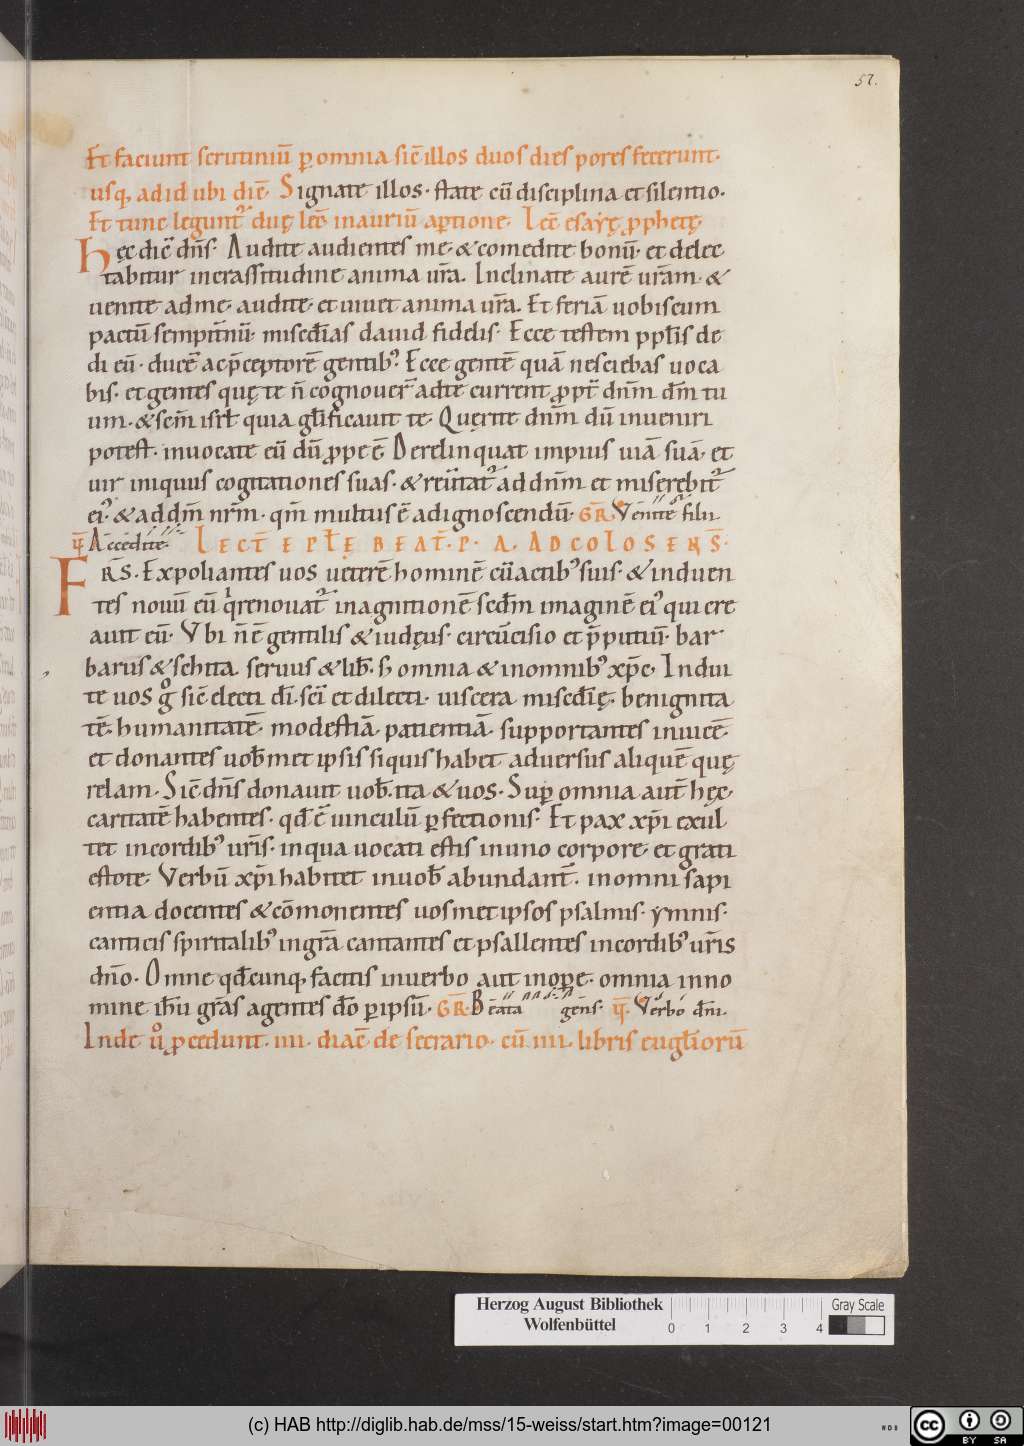 57.
Et faciunt scrutiniū p̲ omnia sic̄ illos duos dies pores fecerunt·
usq; ad id ubi dic̄· Signate illos· state cū disciplina et silentio·
Et tunc legunt᷑ duę lec̄ in auriū ap̲tione· Lec̄ esaẏę p̲phetę·
Hęc dic̄ dn̄s· Audite audientes me· & comedite bonū· et delec
tabitur in crassitudine anima ur̄a. Inclinate aurē ur̄am· &
uenite ad me· audite· et uiuet anima ur̄a. Et feriā uobiscum
pactū sempit̄nū· misedīas dauid fidelis· Ecce testem ppl̄is de
di eū· ducē ac p̄ceptorē gentib;᾿ Ecce gentē quā nesciebas uoca
bis· et gentes quę te n̄ cognouer̄ ad te current ppt̄ dnm̄ dm̄ tu
um· & sc̄m isrl̄ quia gl̄ificauit te· Querite dnm̄ dū inueniri
potest· inuocate eū dū ppe ē· Derelinquat impius uiā suā· et
uir iniquus cogitationes suas· & reu̅tat᷑ ad dnm̄ et miserebit᷑
ei᾿· & ad dm̄ nr̄m· qm̄ multus ē ad ignoscendū· GR̄ Venite filii
V̄ Accedite· LECT̄ EPTL̄Ę BEAT̄· P· A· AD COLOSENS̄·
FR̄S· Expoliantes uos ueterē hominē cū actib᾿ suis· & induen
tes nouū eū qⁱ renouat᷑ in agnitionē sedm̄ imaginē ei᾿ qui cre
auit eū· Vbi n̄ ē gentilis & iudęus· circūcisio et p̄putiū· bar
barus & schita· seruus & lib̄· s; omnia & in omnib᾿ xp̄c· Indui
te uos gº sic̄ electi dī· sc̄i et dilecti· uiscera misedīę· benignita
tē· humanitatē· modestiā· patientiā· supportantes inuicē·
et donantes uob̄met ipsis si quis habet aduersus aliquē quę
relam· Sic̄ dn̄s donauit uob̄· ita & uos· Sup̲ omnia aut̄ hęc·
caritatē habentes· qd̄ ē uinculū p̲fectionis· Et pax xp̄i exul
tet in cordib᾿ ur̄is· in qua uocati estis in uno corpore· et grati
estote· Verbū xp̄i habitet in uob̄ abundant̄· in omni sapi
entia docentes & cōmonentes uosmet ipsos psalmis· ẏmnis·
canticis spiritalib᾿ in gr̄a cantantes et psallentes in cordib᾿ ur̄is
dn̄o· Omne qd̄cunq; facitis in uerbo aut in op̲e· omnia in no
mine ih̄u gr̄as agentes dō p̲ ipsū· GR̄· Beata gens· V̄· Verbo dn̄i·
Inde uº p̲cedunt· IIII· diac̄ de secrario· cū IIII· libris eugl̄iorū
Herzog August Bibliothek
Wolfenbüttel
0 1 2 3 4
Gray Scale
(c) HAB http://diglib.hab.de/mss/15-weiss/start.htm?image=00121
cc BY SA